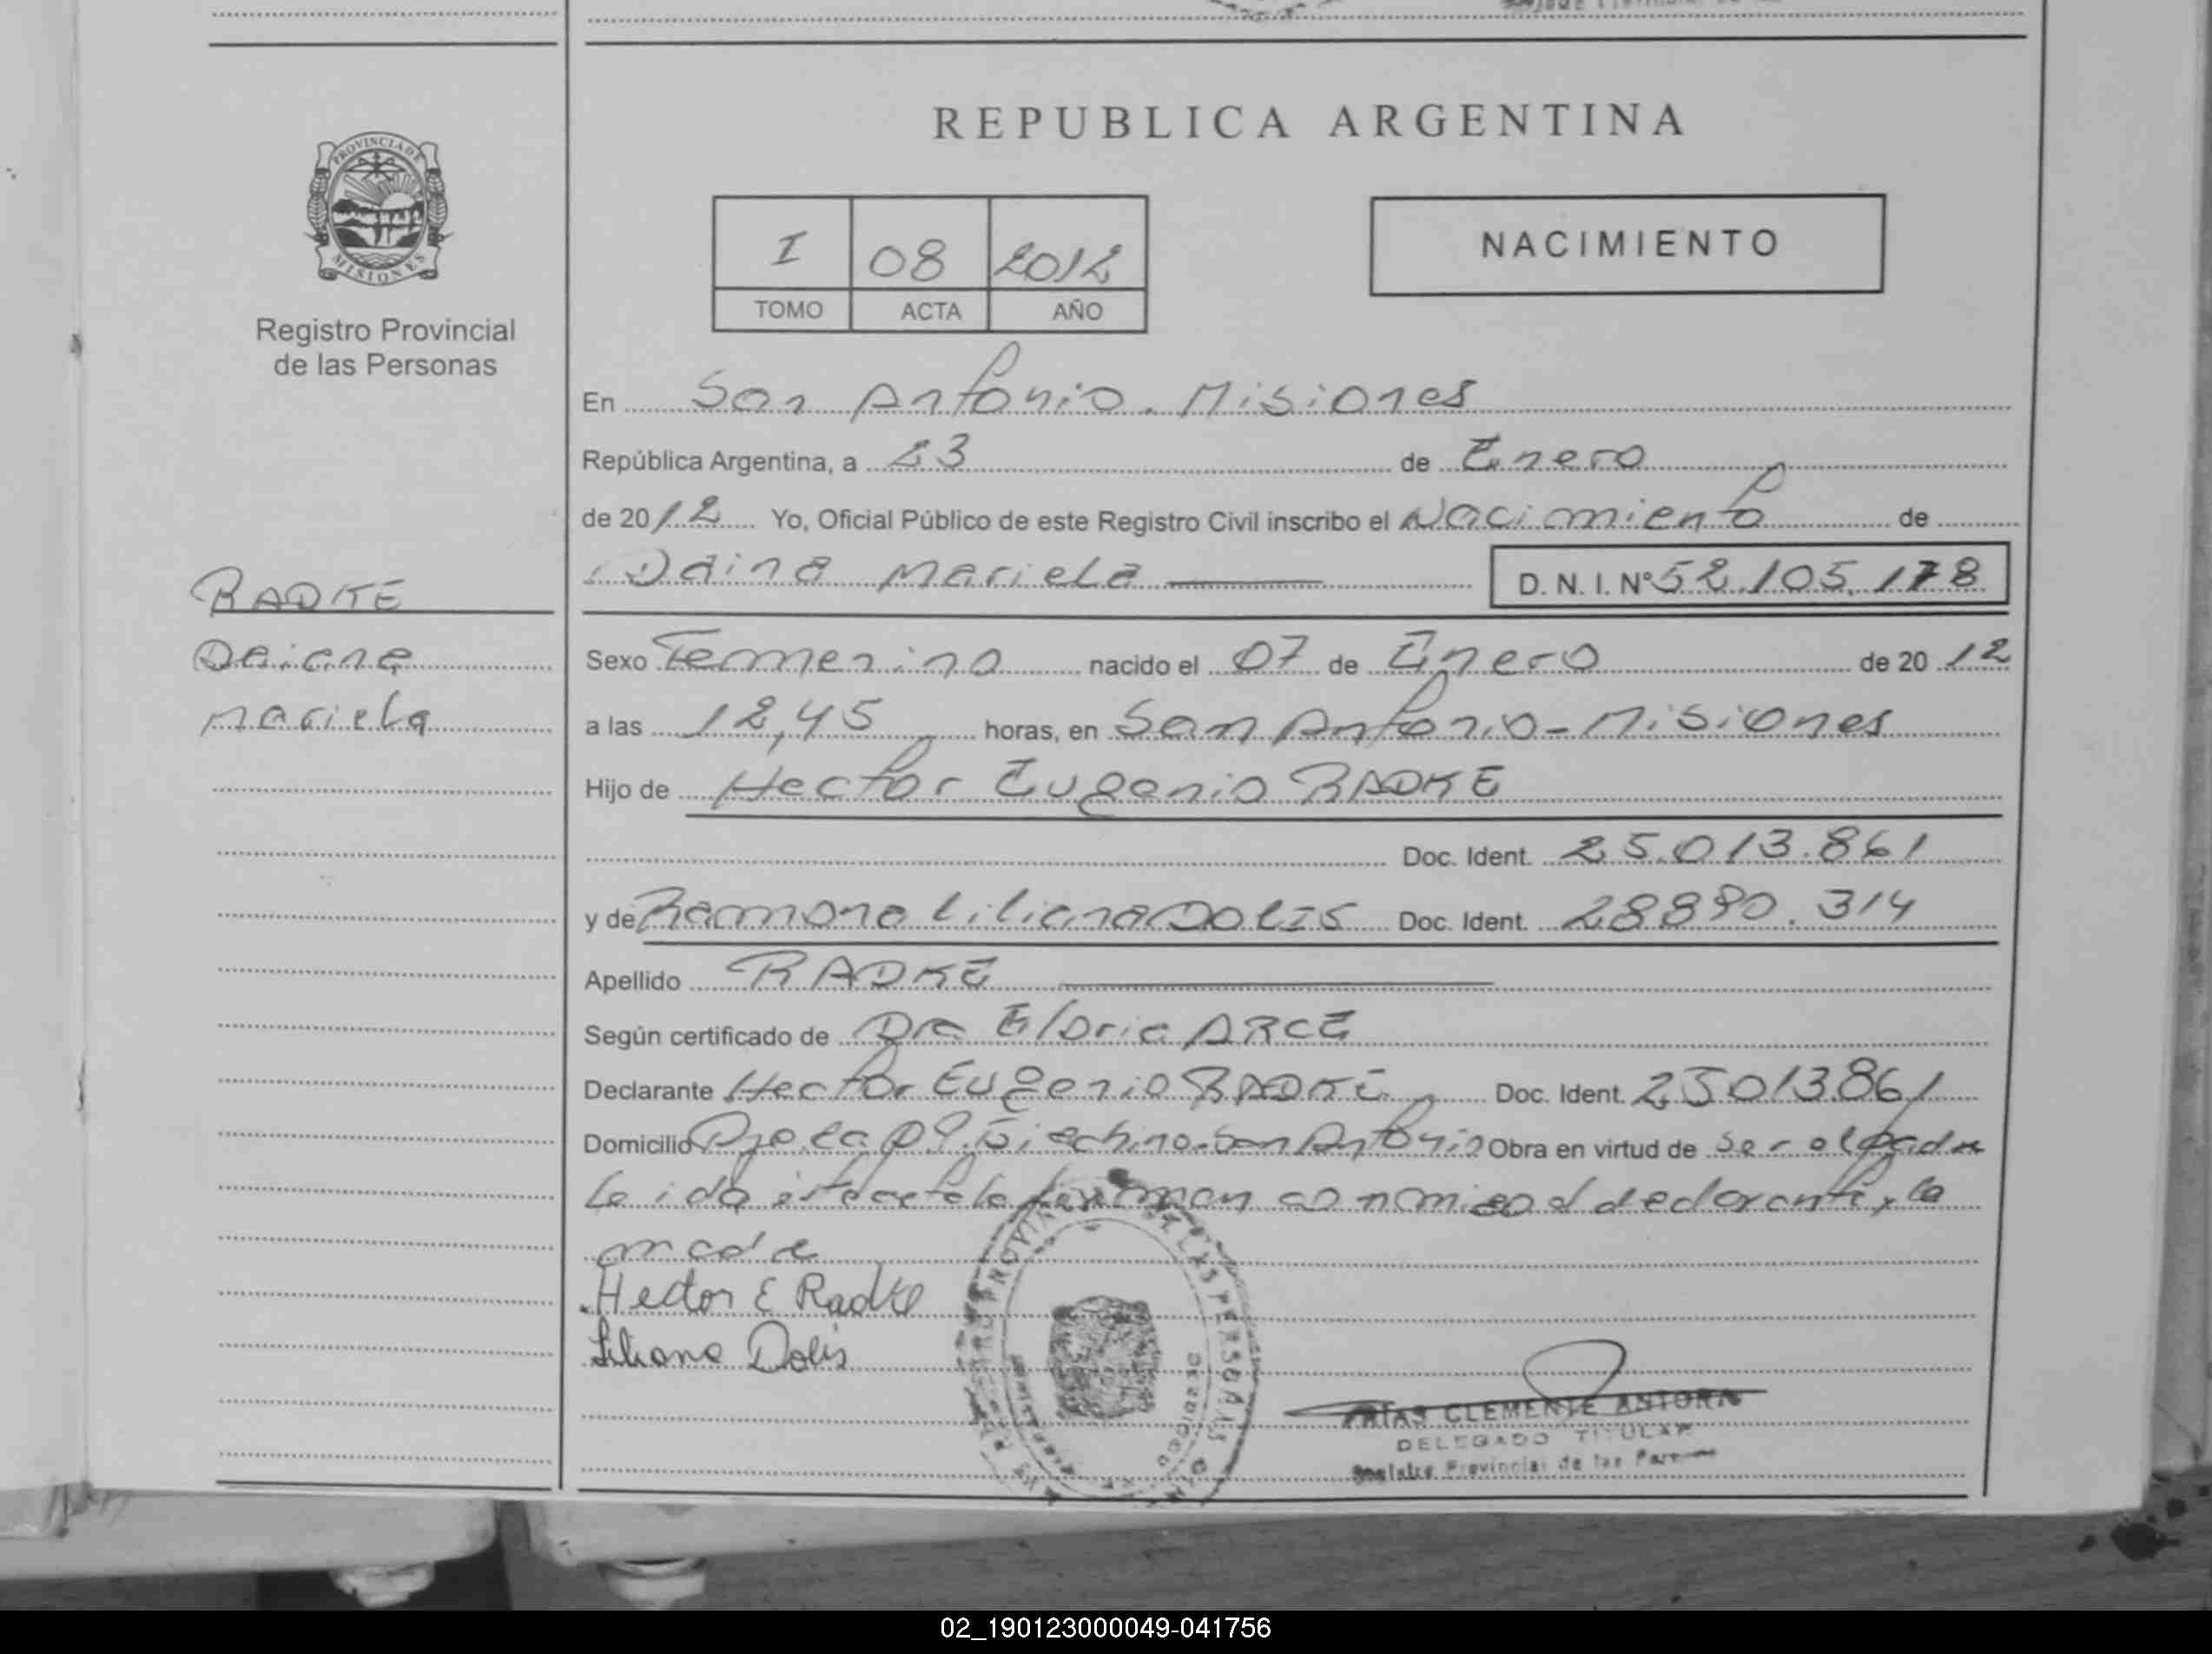 REPUBLICA ARGENTINA
PROVINCIA DE
MISIONES
Registro Provincial
de las Personas
I 08 2012
TOMO ACTA AÑO
NACIMIENTO
En San Antonio. Misiones
República Argentina, a 23 de Enero
de 2012 Yo, Oficial Público de este Registro Civil inscribo el Nacimiento de
Daina Mariela D. N. I. Nº 52.105.178
RADKE
Daiana
Mariela
Sexo Femenino nacido el 07 de Enero de 2012
a las 12,45 horas, en San Antonio - Misiones
Hijo de Hector Eugenio RADKE
Doc. Ident. 25.013.861
y de Ramona Liliana DOLIS Doc. Ident. 28890.314
Apellido RADKE
Según certificado de Dra Gloria ARCE
Declarante Hector Eugenio RADKE Doc. Ident. 25013861
Domicilio San Antonio Obra en virtud de ser el padre
Leida el acta la firman conmigo el declarante y la
madre
Hector E Radke
Liliana Dolis
CLEMENTE
DELEGADO TITULAR
Registro Provincial de las
02_190123000049-041756